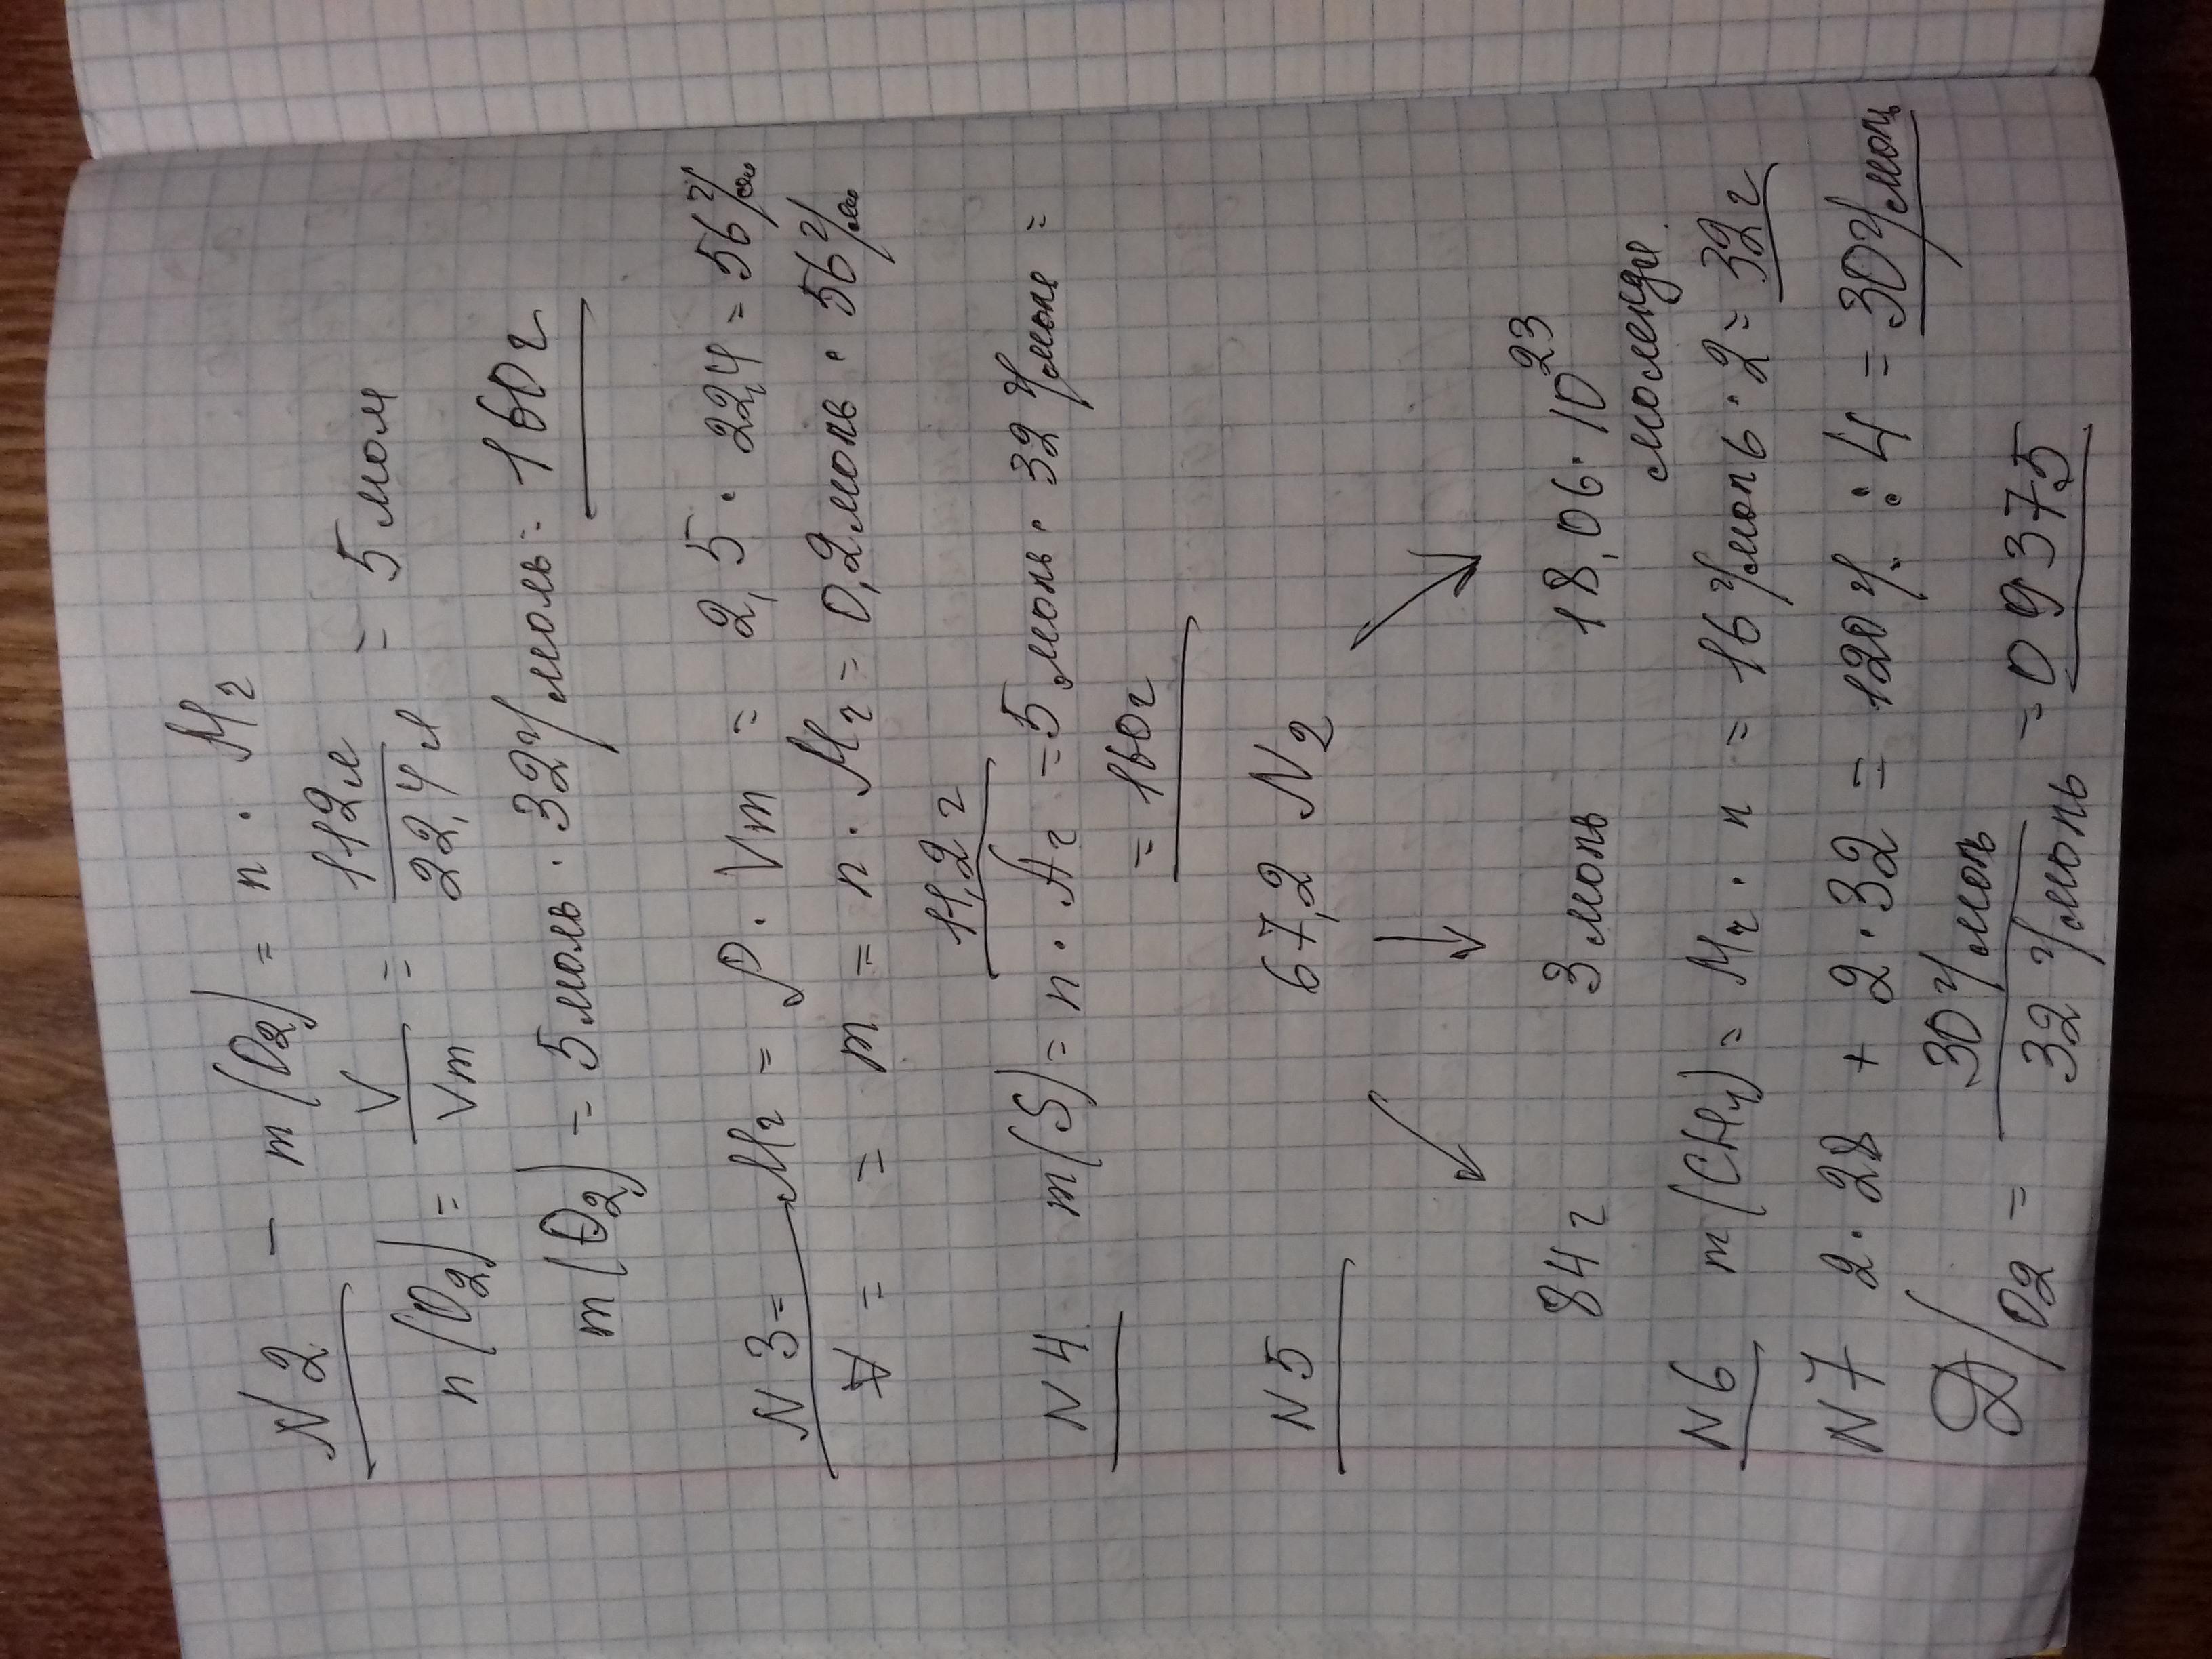 N2 - m(O2) = n · Mr
n(O2) = V/Vm = 112л/22,4л = 5 мол
m(O2) = 5 моль · 32 г/моль = 160 г
N3 = Mr = ρ · Vm = 2,5 · 22,4 = 56 г/мол
= = m = n · Mr = 0,2 моль · 56 г/мол
11,2 г
N4 m(S) = n · Ar = 5 моль · 32 г/моль =
= 160 г
N5 67,2 N2
84 г 3 моль 18,06 · 10^23
молекул
N6 m(CH4) = Mr · n = 16 г/моль · 2 = 32 г
N7 2 · 28 + 2 · 32 = 120 г/. : 4 = 30 г/моль
D/O2 = 30 г/моль / 32 г/моль = 0 9375